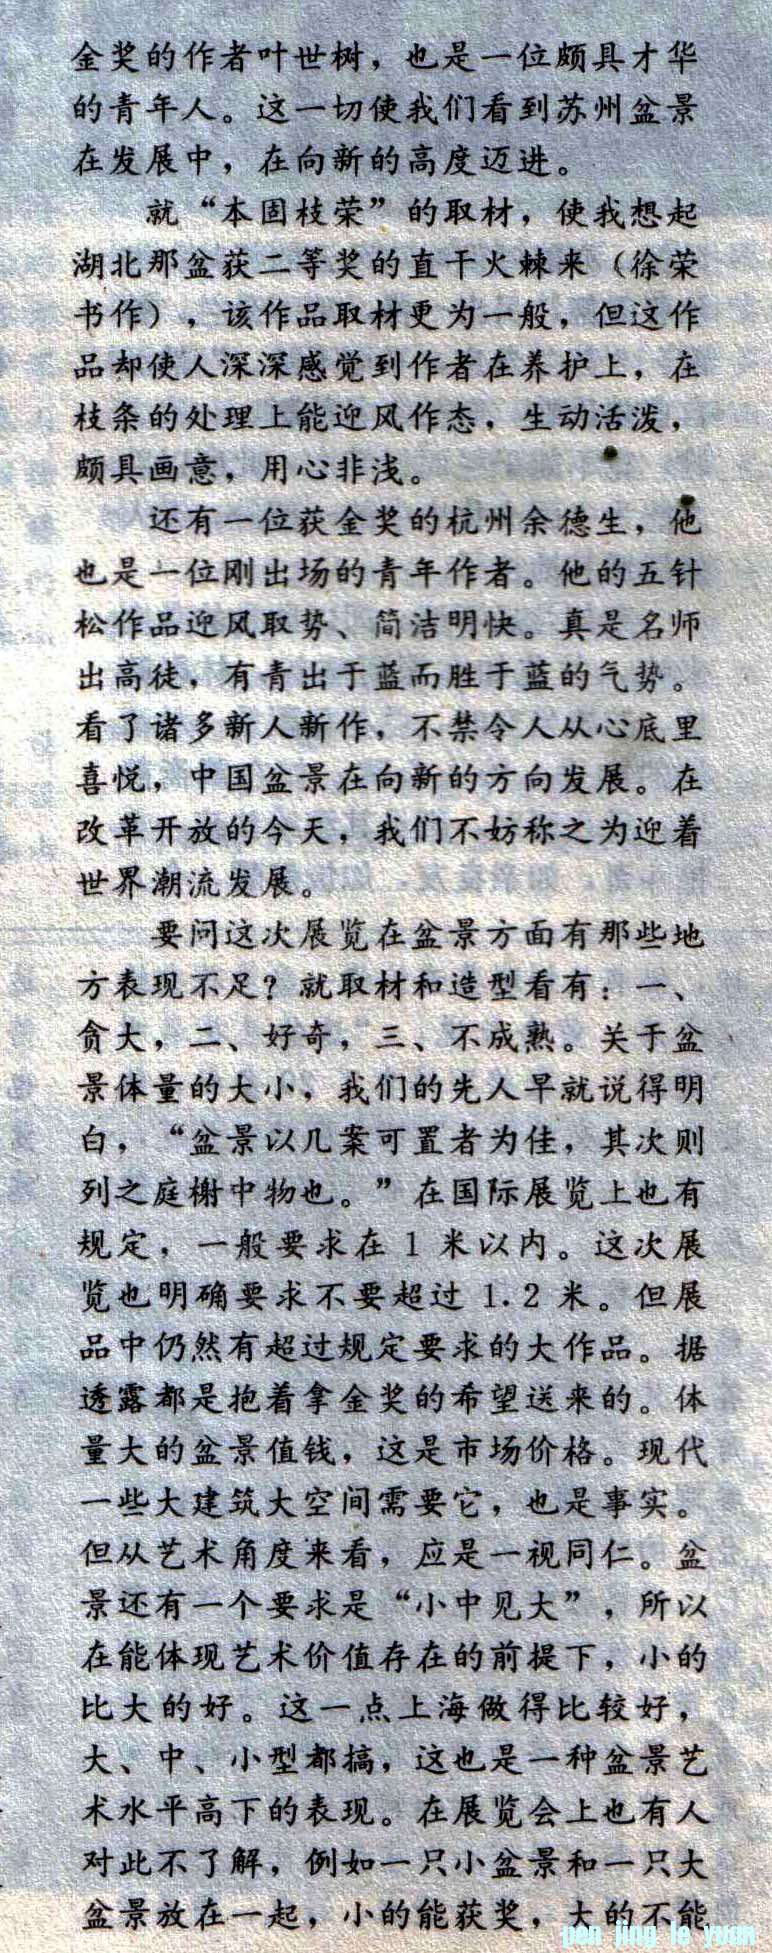 金奖的作者叶世树，也是一位颇具才华
的青年人。这一切使我们看到苏州盆景
在发展中，在向新的高度迈进。
就“本固枝荣”的取材，使我想起
湖北那盆获二等奖的直干火棘来（徐荣
书作），该作品取材更为一般，但这作
品却使人深深感觉到作者在养护上，在
枝条的处理上能迎风作态，生动活泼，
颇具画意，用心非浅。
还有一位获金奖的杭州余德生，他
也是一位刚出场的青年作者。他的五针
松作品迎风取势、简洁明快。真是名师
出高徒，有青出于蓝而胜于蓝的气势。
看了诸多新人新作，不禁令人从心底里
喜悦，中国盆景在向新的方向发展。在
改革开放的今天，我们不妨称之为迎着
世界潮流发展。
要问这次展览在盆景方面有那些地
方表现不足？就取材和造型看有：一、
贪大，二、好奇，三、不成熟。关于盆
景体量的大小，我们的先人早就说得明
白，“盆景以几案可置者为佳，其次则
列之庭榭中物也。”在国际展览上也有
规定，一般要求在1米以内。这次展
览也明确要求不要超过1.2米。但展
品中仍然有超过规定要求的大作品。据
透露都是抱着拿金奖的希望送来的。体
量大的盆景值钱，这是市场价格。现代
一些大建筑大空间需要它，也是事实。
但从艺术角度来看，应是一视同仁。盆
景还有一个要求是“小中见大”，所以
在能体现艺术价值存在的前提下，小的
比大的好。这一点上海做得比较好，
大、中、小型都搞，这也是一种盆景艺
术水平高下的表现。在展览会上也有人
对此不了解，例如一只小盆景和一只大
盆景放在一起，小的能获奖，大的不能
pen jing le yuan